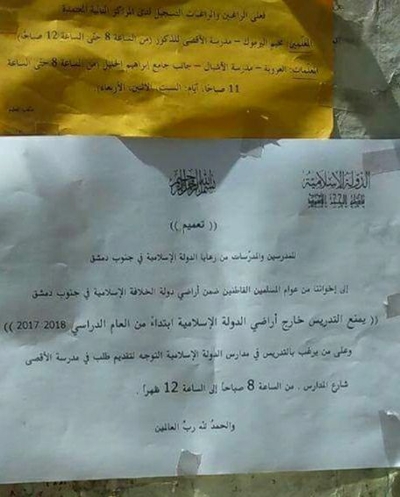 فعلى الراغبين والراغبات التسجيل لدى المراكز التالية المعتمدة
المعلمين: مخيم اليرموك – مدرسة الأقصى للذكور (من الساعة 8 حتى الساعة 12 صباحًا)
المعلمات: العروبة – مدرسة الأشبال – جانب جامع إبراهيم الخليل (من الساعة 8 حتى الساعة
11 صباحًا) أيام: السبت، الاثنين، الأربعاء)
بسم الله الرحمن الرحيم
الدولة الإسلامية
(( تعميم ))
للمدرسين والمدرّسات من رعايا الدولة الإسلامية في جنوب دمشق
إلى إخواننا من عوام المسلمين القاطنين ضمن أراضي دولة الخلافة الإسلامية في جنوب دمشق
(( يمنع التدريس خارج أراضي الدولة الإسلامية ابتداءً من العام الدراسي 2018-2017 ))
وعلى من يرغب بالتدريس في مدارس الدولة الإسلامية التوجه لتقديم طلب في مدرسة الأقصى
شارع المدارس . من الساعة 8 صباحاً إلى الساعة 12 ظهراً .
والحمدُ لله ربِّ العالمين